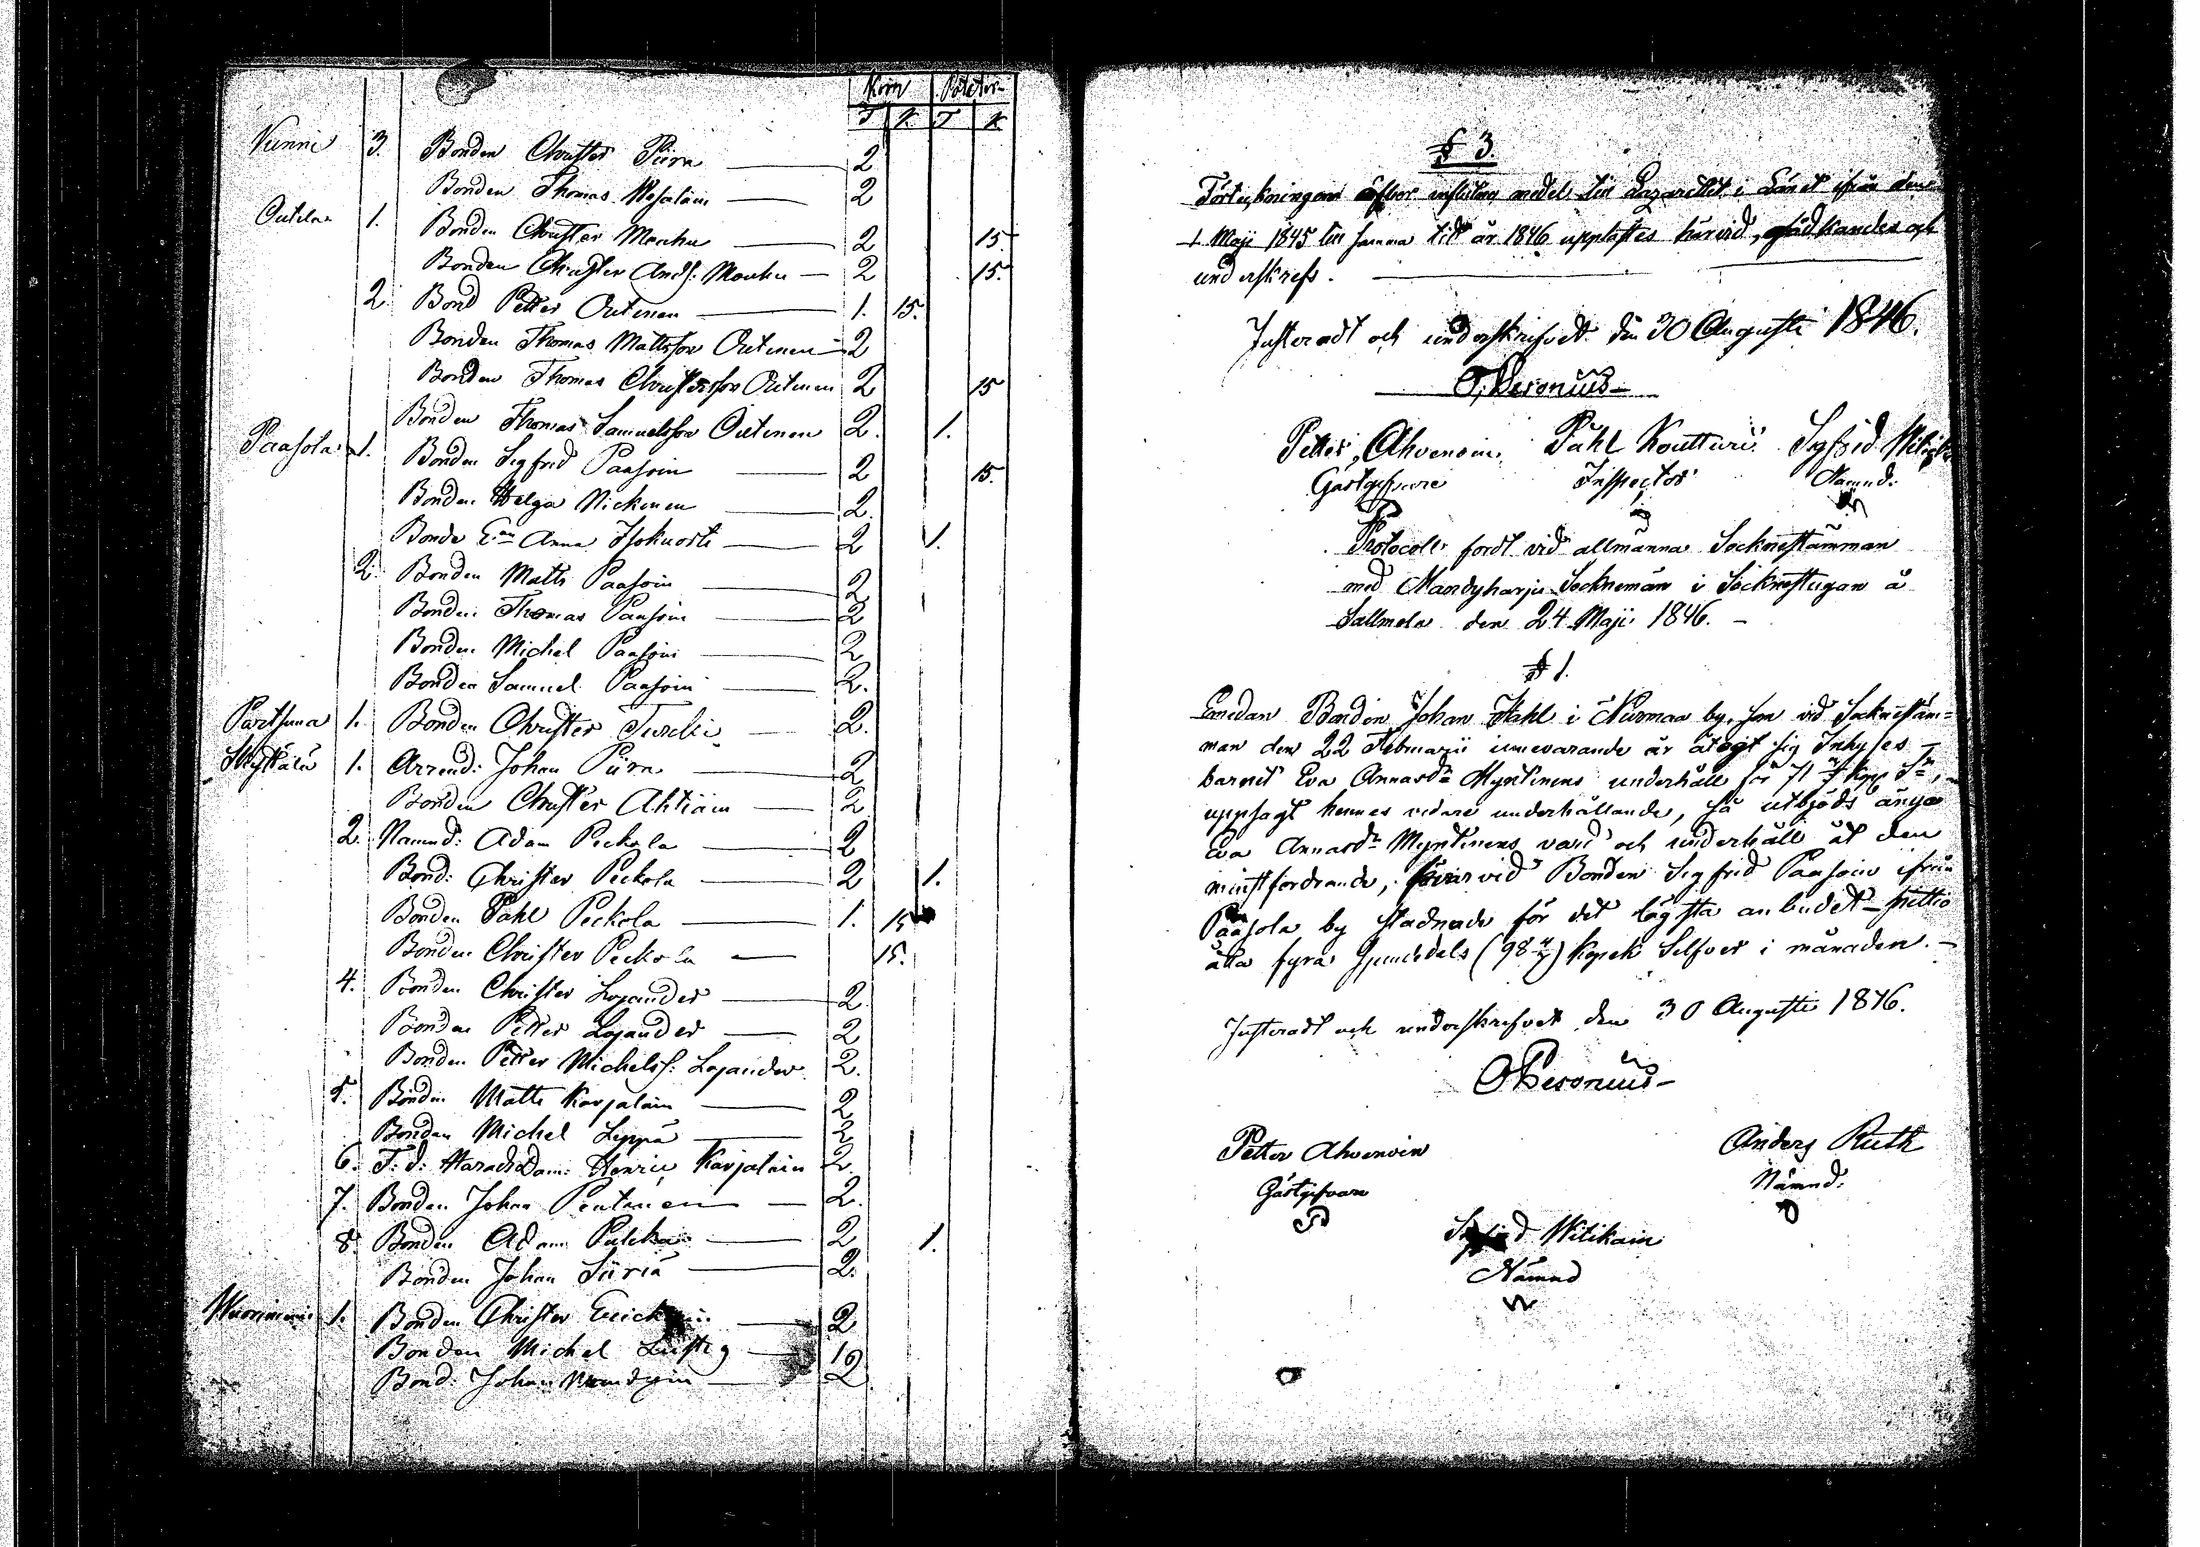 Korn Potäter
T K T K
Nurmi 3. Bonden Christer Piira 2
Bonden Thomas Mesalain 2
Outila 1. Bonden Christer Mouhu 2 15
Bonden Christer Andſ: Mouhu 2 15.
2. Bond Petter Outinen 1. 15.
Bonden Thomas Mattsson Outinen 2
Bonden Thomas Christersson Outinen 2 15
Bonden Thomas Samuelsson Outinen 2. 1.
Paasola 1. Bonden Sigfrid Paasoin 2 15.
Bonden Helga Nickinen 2.
Bonde Anna 2 1.
2. Bonden Matts Paasoin 2
Bonden Thomas Paasoin 2
Bonden Michel Paasoin 2
Bonden Samuel Paasoin 2.
Partsima 1. Bonden Christer Turcki 2.
1. Arrend: Johan Piira 2
Bonden Christer Ahtiain 2
2. Nämnd: Adam Peckola 2
Bond: Christer Peckola 2 1.
Bonden Påhl Peckola 1. 15
Bonden Christer Peckola 15.
4. Bonden Christer Lojander 2
Bonden Petter Lojander 2
Bonden Petter Michelsſ: Lojander 2.
5. Bonden Matts Karjalain 2
Bonden Michel Leppä 2
6. F: d: Häradsdom: Henric Karjalain 2.
7. Bonden Johan Pentinen 2.
8. Bonden Adam Pulcka 2 1.
Bonden Johan Siiriä 2.
1. Bonden Christer 2
Bonden Michel Lustig 1
Bond: Johan 2
§ 3.
Förteckningen öfver influtna medel till Lazarettet i Länet ifrån den
1 Maji 1845 till samma tid år 1846 upplästes härvid, godkändes och
underskrefs.
Justeradt och underskrifvet den 30 Augusti 1846.
O, Weronius
Petter Ahvenoin Påhl Koutturi Sigfrid
Gästgifvare Inspector Nämnd:
Protocoll fördt vid allmänna Sockenstämman
med Mandyharju Sockenmän i Sockenstugan å
Sallmela den 24 Maji 1846.
§ 1.
Emedan Bonden Johan Stahl i Nurmaa by, som vid Sockenstäm=
man den 22 Februarii innevarande år åtagit sig Inhyses
barnet Eva Annasdr Myntinens underhåll för 71
uppsagt hennes vidare underhållande, så utbjöds ånyo
Eva Annasdr Myntinens vård och underhåll åt den
minstfordrande, hvarvid Bonden Sigfrid Paasoin ifrån
Paasola by stadnade för det lägsta anbudet nittio
åtta fyra sjundedels (98 4/7) Kopek Silfver i månaden.
Justeradt och underskrifvet den 30 Augusti 1846.
O Weronius
Petter Ahvenoin Anders Ruth
Gästgifvare Nämnd:
Sigfrid Witikain
Nämnd